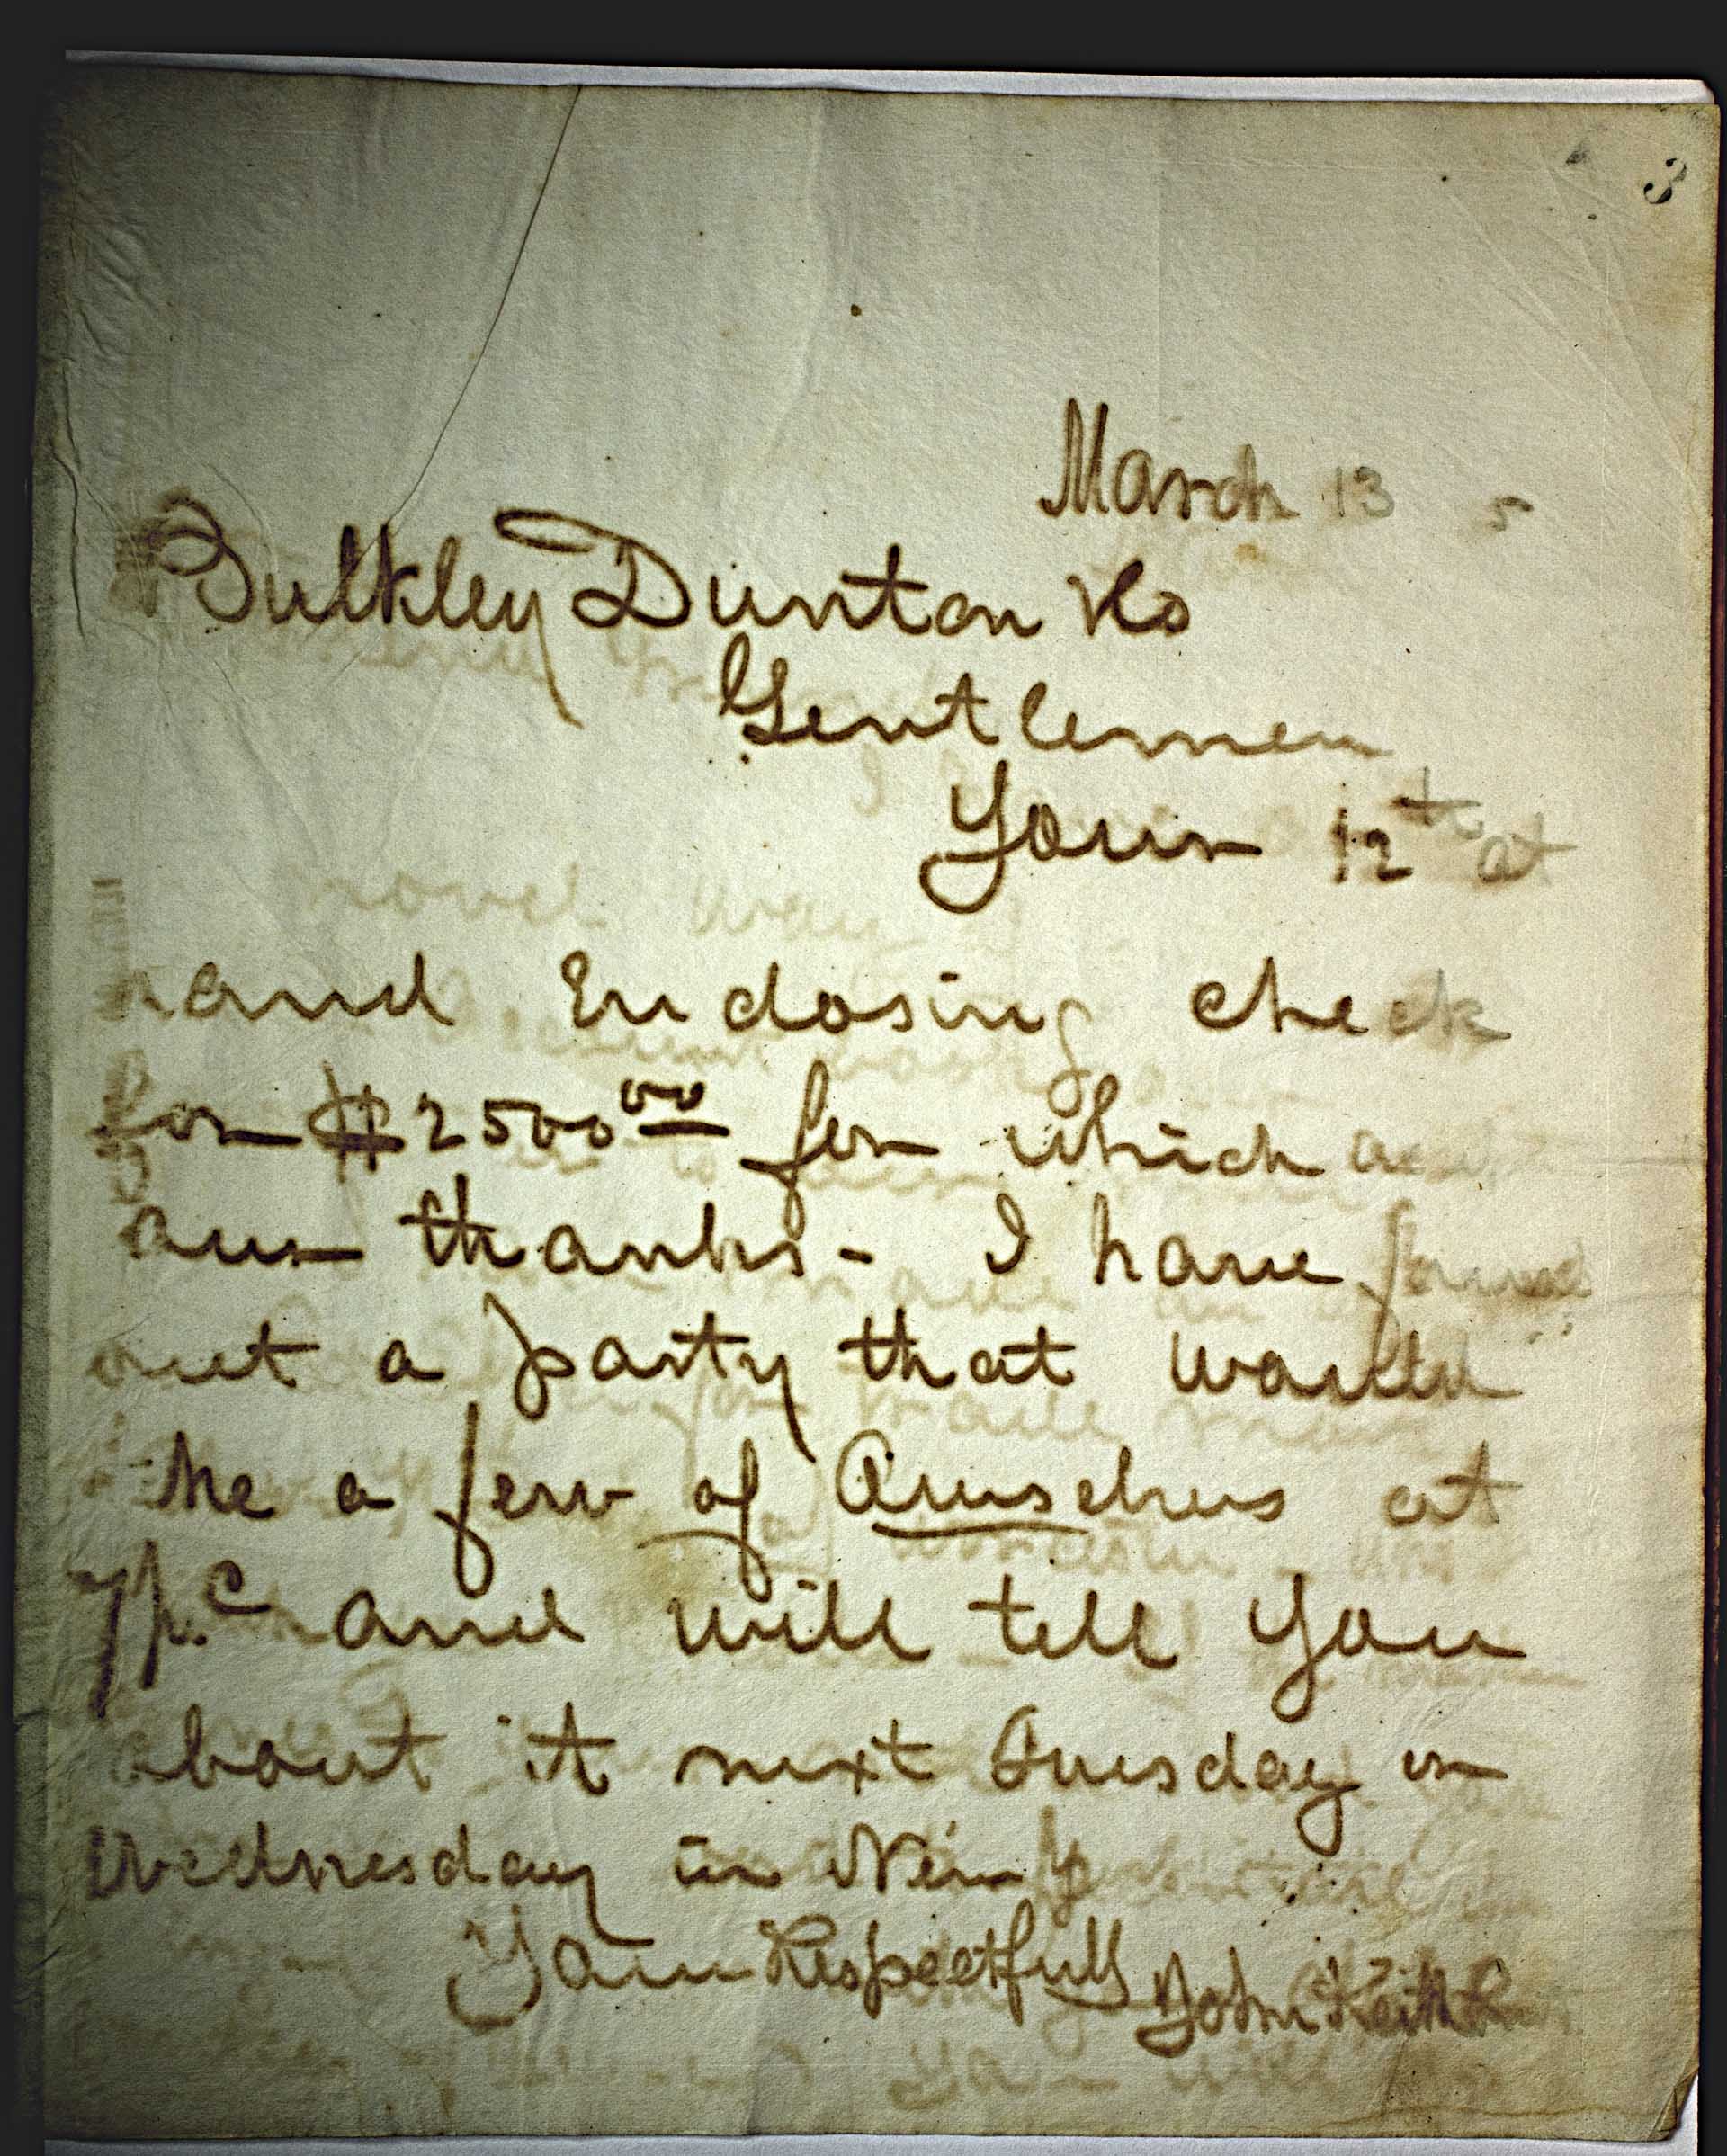 3
March 13 5
Bulkley Dunton & Co
Gentlemen
Your 12th at
hand Enclosing check
for $2500.00 for which
our thanks - I have found
out a party that would
like a few of at
7 pc and will tell you
about it next Tuesday or
Wednesday in New Y
Your Respectfully John Keith